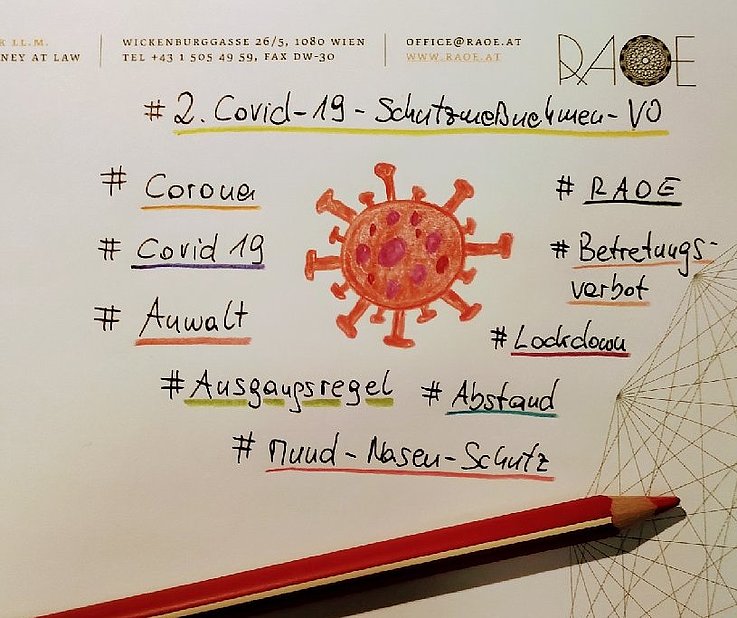 R LL.M.
NEY AT LAW
WICKENBURGGASSE 26/5, 1080 WIEN
TEL +43 1 505 49 59, FAX DW-30
OFFICE@RAOE.AT
WWW.RAOE.AT
RAOE
# 2. Covid-19-Schutzmaßnahmen-VO
# Corona
# Covid 19
# Anwalt
# RAOE
# Betretungs-
verbot
# Lockdown
# Ausgangsregel # Abstand
# Mund-Nasen-Schutz